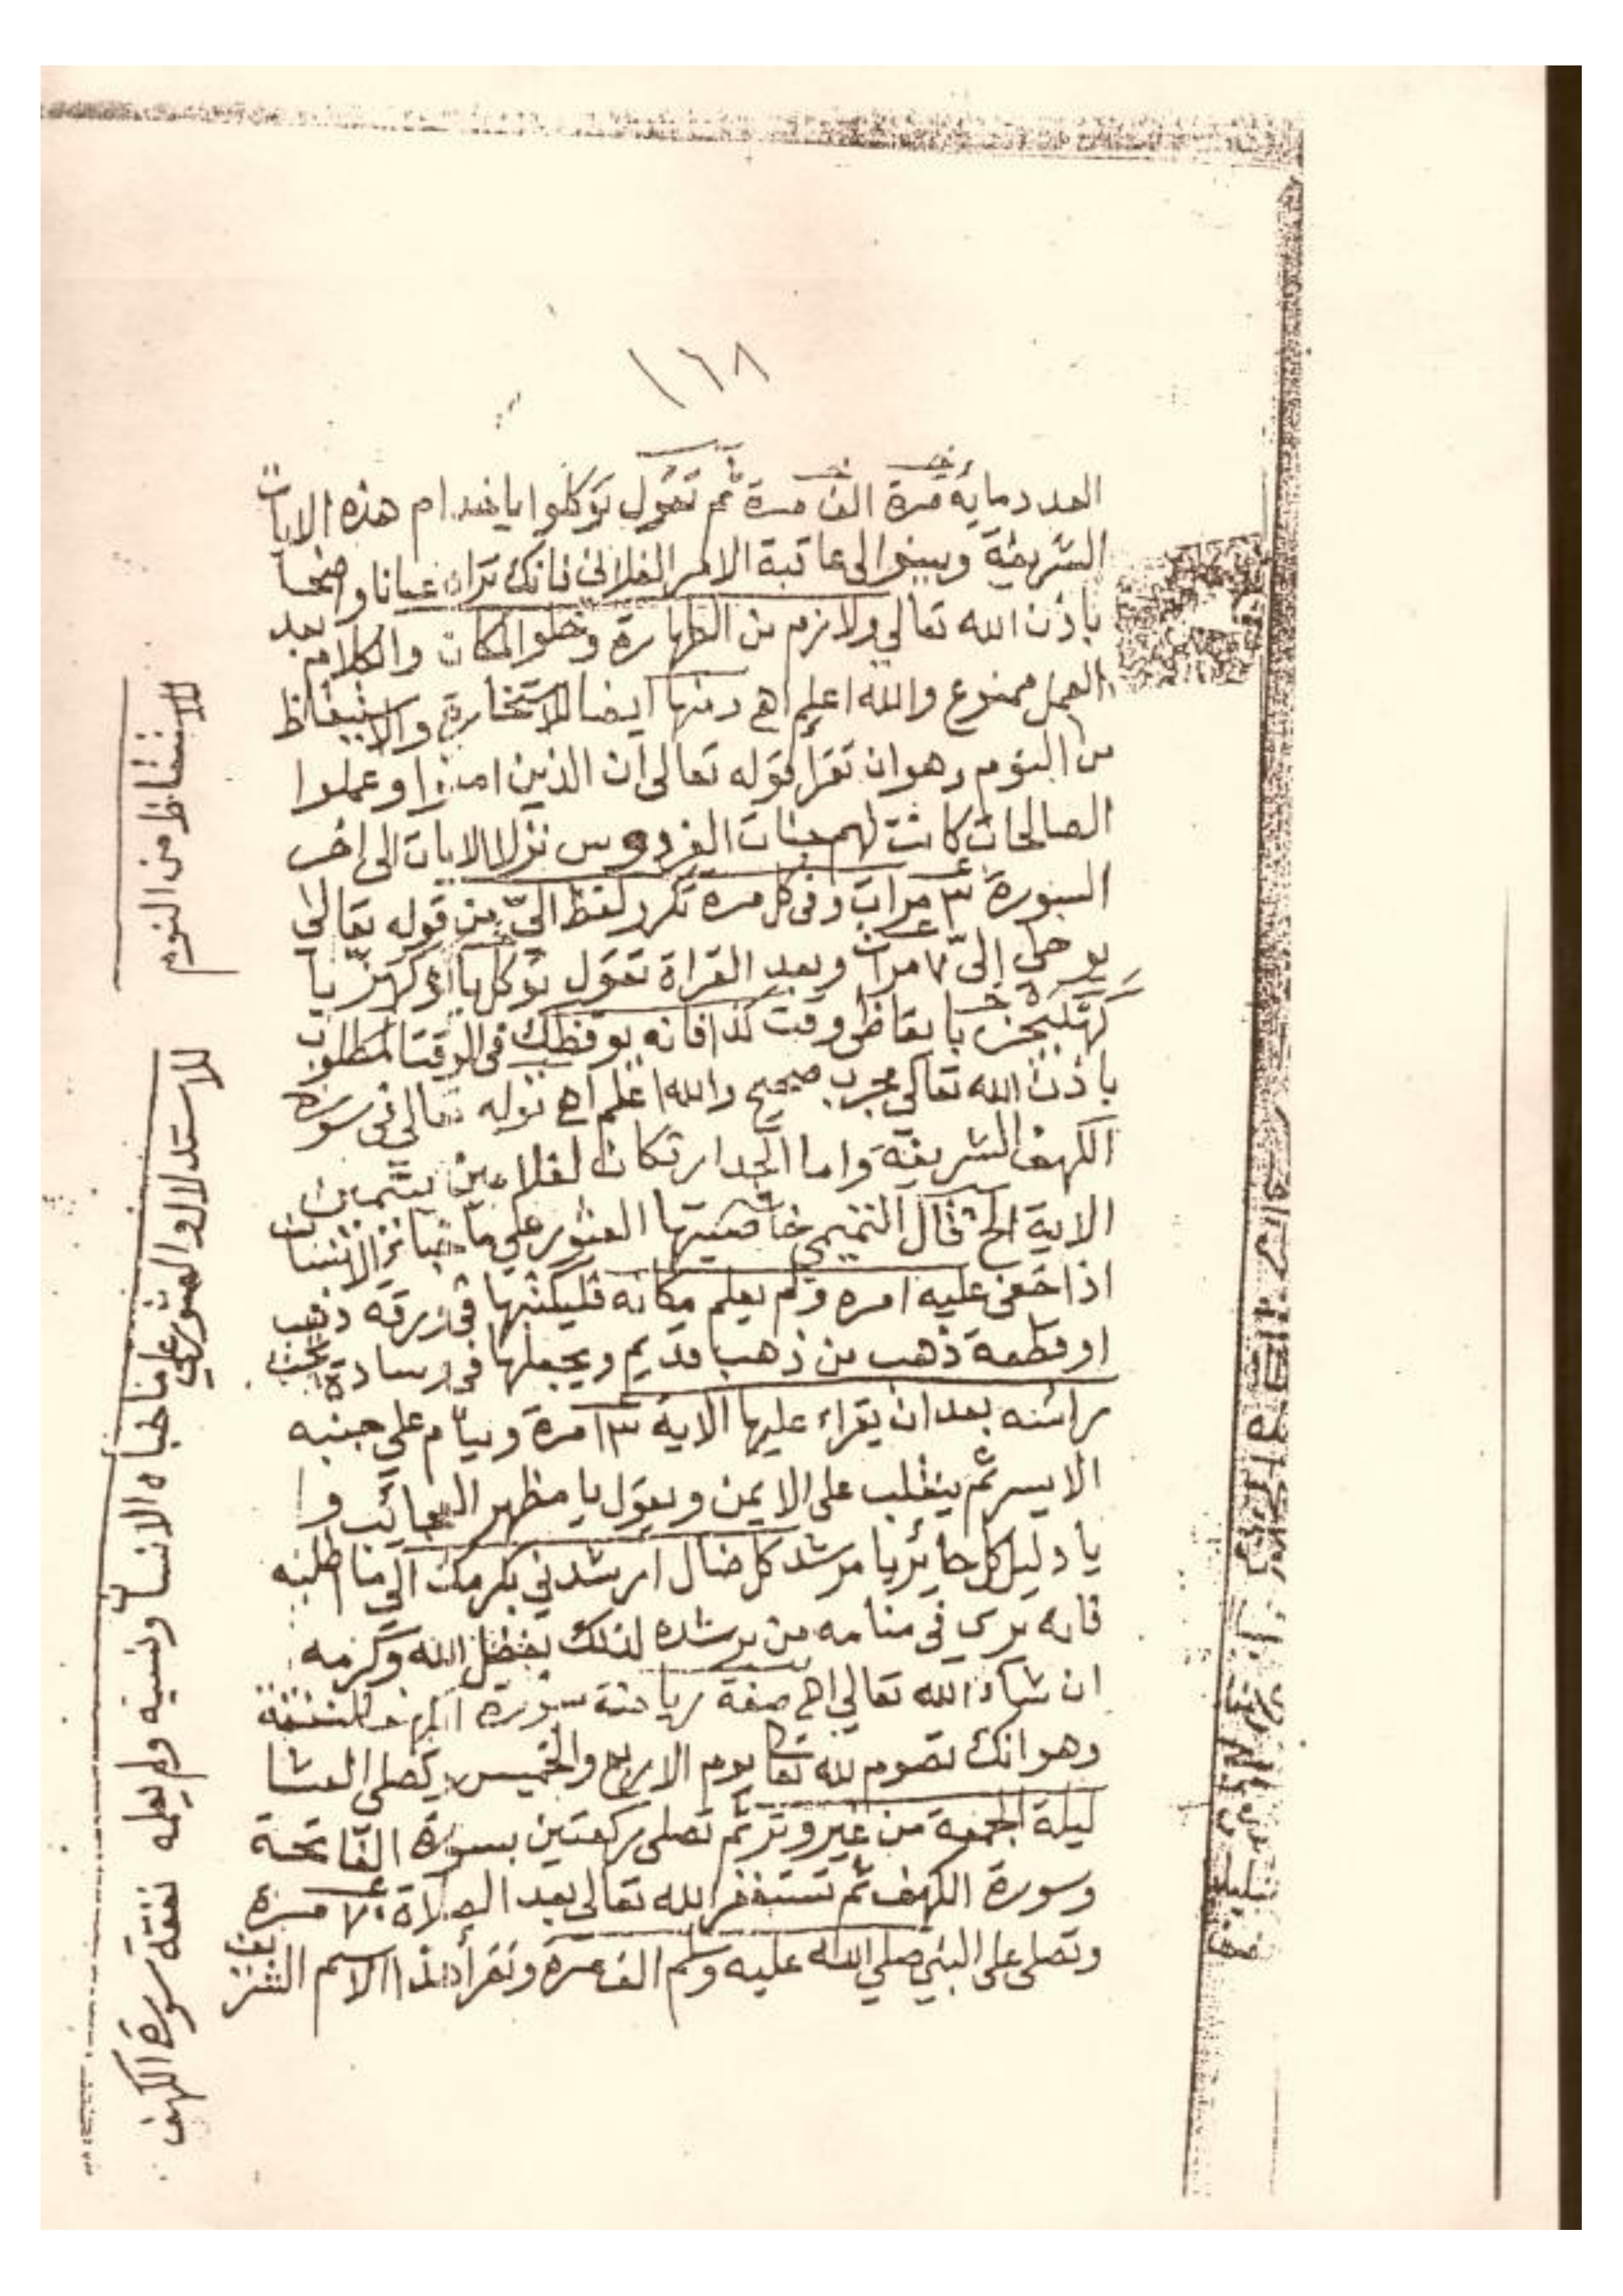 ١٦٨
العدد مائة مرة الف مرة ثم تقول توكلوا يا خدام هذه الايات
الشريفة وبينوا لى عاقبة الامر الفلاني فانك تراه عيانا واضحا
باذن الله تعالي ولازم من الطهارة وخلو المكان والكلام بعد
العمل ممنوع والله اعلم اهـ ومنها ايضا للاستخارة والاستيقاظ
من النوم وهو ان تقرا قوله تعالى ان الذين امنوا وعملوا
الصالحات كانت لهم جنات الفردوس نزلا الايات الى اخر
السورة ٣ مرات وفى كل مرة تكرر لفظ اليّ من قوله تعالى
يوحى إلىّ ٧ مرات وبعد القراة تقول توكل يا
يا يقاظى وقت كذا فانه يوقظك فى الوقت المطلوب
باذن الله تعالي مجرب صحيح والله اعلم اهـ قوله تعالى فى سورة
الكهف الشريفة واما الجدار فكان لغلامين يتيمين
الاية الخ قال التميمي خاصيتها العثور على ما خباه الانسان
اذا خفى عليه امره ولم يعلم مكانه فليكتبها فى ورقه ذهب
او قطعة ذهب من ذهب قديم ويجعلها فى وسادة تحت
رائسه بعد ان يقراء عليها الاية ١٣ مرة وينام على جنبه
الايسر ثم ينقلب على الايمن ويقول يا مظهر العجائب و
يا دليل كل حائر يا مرشد كل ضال ارشدني بكرمك الى ما اطلبه
فانه يرى فى منامه من يرشده لذلك بفضل الله وكرمه
ان شاء الله تعالي اهـ صفة رياضة سورة الكهف للنفقة
وهو انك تصوم لله تعا يوم الاربع والخميس وتصلى العشا
ليلة الجمعة من غير وتر ثم تصلى ركعتين بسورة الفاتحة
وسورة الكهف ثم تستغفر الله تعالى بعد الصلاة ٧٠ مرة
وتصلى على النبي صلي الله عليه وسلم الف مرة وتقرأ هذا الاسم الشريف
للاستيقاظ من النوم
للاستدلال والعثور على ما خباه الانسان ونسيه ولم يعلمه
نفقة سورة الكهف